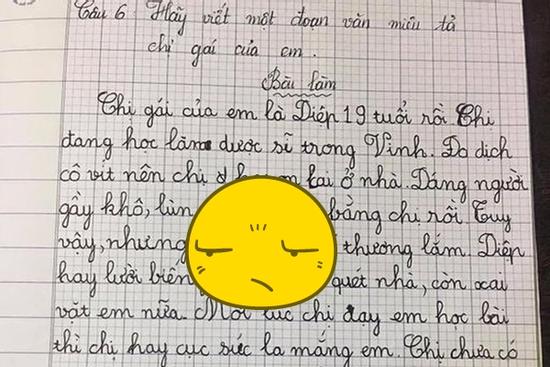 Câu 6 Hãy viết một đoạn văn miêu tả
chị gái của em.
Bài làm
Chị gái của em là Diệp 19 tuổi rồi Chị
đang học làm dược sĩ trong Vinh. Do dịch
cô vít nên chị ở lai ở nhà. Dáng người
gầy khô, lùn bằng chị rồi. Tuy
vậy, nhưng thương lắm. Diệp
hay lười biến quét nhà, còn xai
vặt em nữa. Mỗi lúc chị dạy em học bài
thì chị hay cục súc la mắng em. Chị chưa có